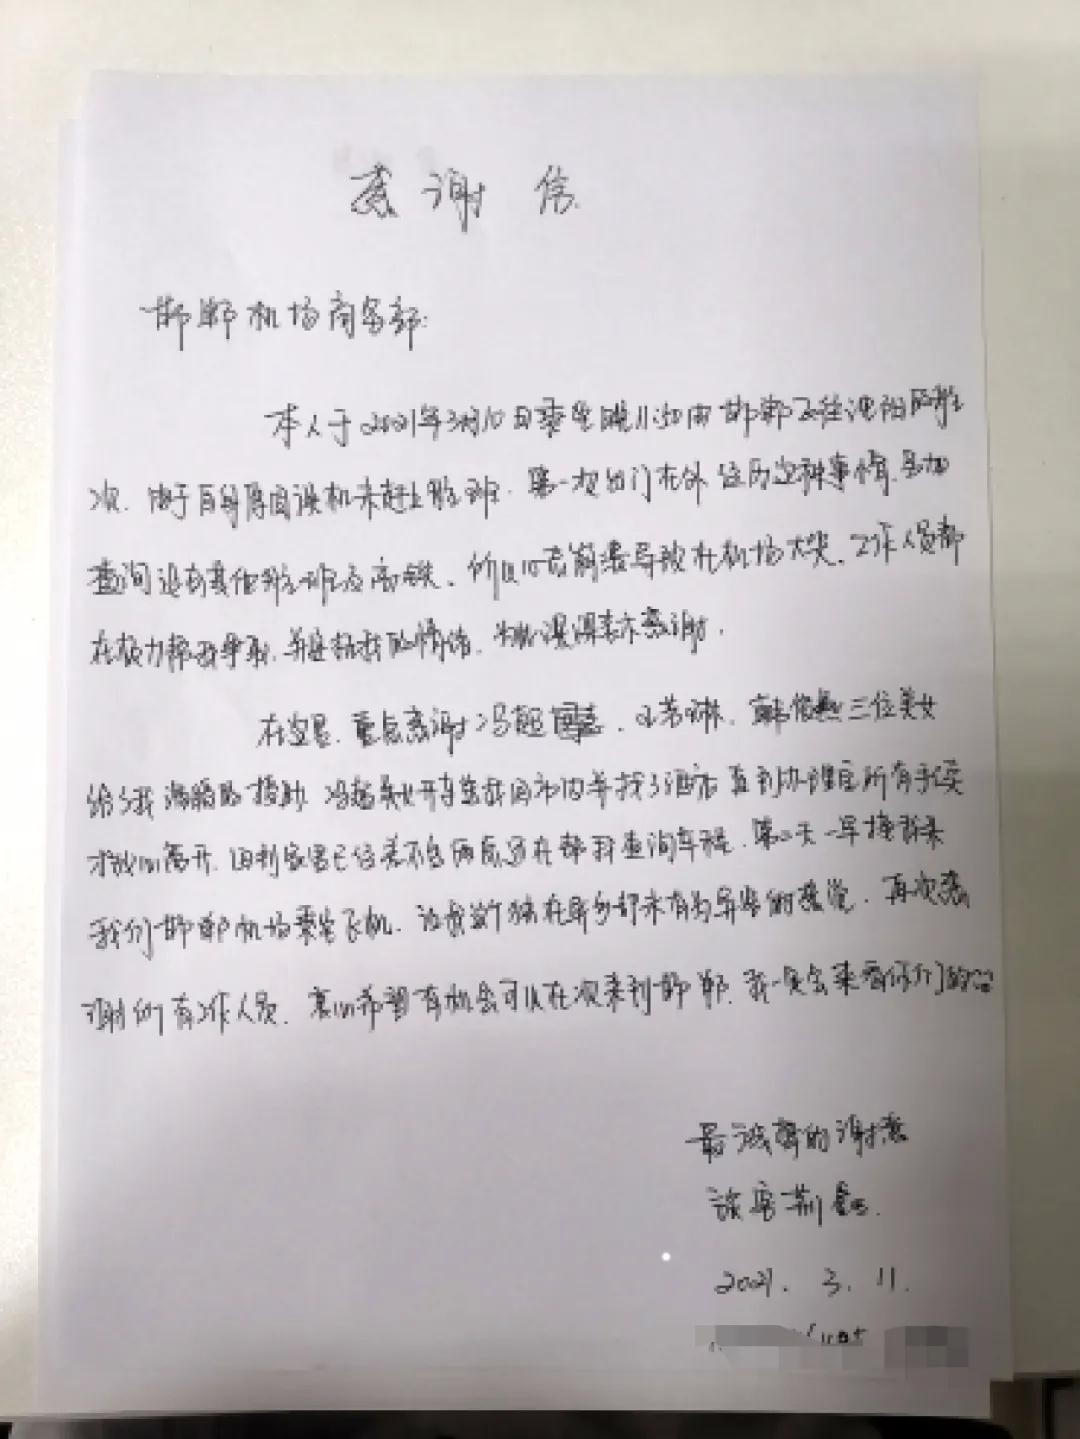 感谢信
邯郸机场商务部:
本人于2021年3月10日乘坐晚11:50由邯郸飞往沈阳的航
次,由于自身原因误机未赶上航班,第一次出门在外经历这种事情,再加
查询没有其他航班及高铁,所以心态崩溃导致在机场大哭,工作人员都
在极力帮我争取,并安抚我的情绪,为此深深表示感谢.
在这里,重点感谢冯超 三位美女
给了我满满的援助,冯超美女开车送我回市内并找了酒店直到办理完所有手续
才放心离开,回到家里已经差不多两点还在帮我查询车程,第二天一早接
我们邯郸机场乘坐飞机,让我独在异乡却未有为异客的感觉,再次感
谢所有工作人员,衷心希望有机会可以在次来到邯郸,我一定会来看你们的
最诚挚的谢意
旅客荆
2021.3.11.